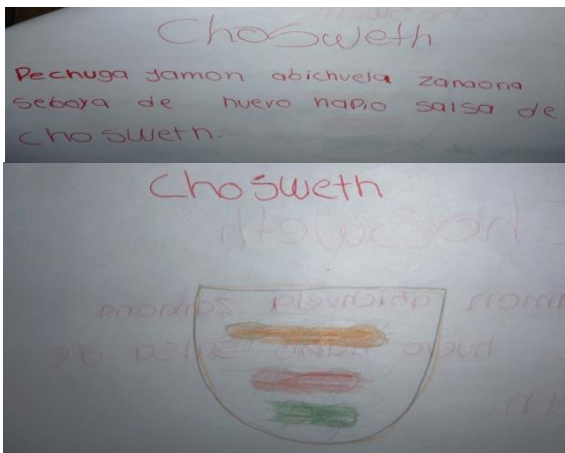 Chosweth
Pechuga jamon abichuela zanaoria
seboya de huevo napio salsa de
chosweth.
Chosweth